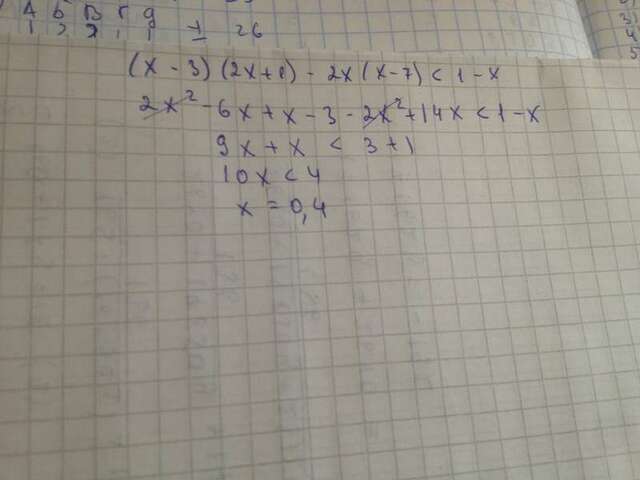 А Б В Г Д
1 2 2 1 1 + 26
(x - 3) (2x+1) - 2x (x-7) < 1 - x
2x² - 6x + x - 3 - 2x² + 14x < 1 - x
9x + x < 3 + 1
10x < 4
x = 0,4